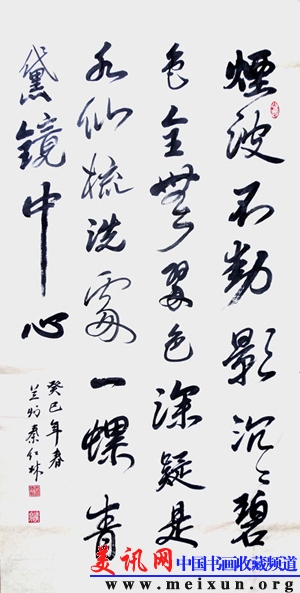 煙波不動影沉〻碧
色全無翠色深疑是
水仙梳洗處一螺青
黛鏡中心
癸巳年春
秦红林
美讯网 中国书画收藏频道
www.meixun.org